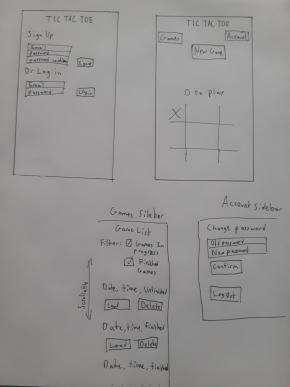 TIC TAC TOE
Sign Up
Email
Password
Password confirm
Or Log in
Password
Login
TIC TAC TOE
Games
Account
New Game
O to play
X
Games Sidebar
Game List
Filter: Games In
progress
Finished
Games
Scrollable
Date, time, Unfinished
Load Delete
Date, time, finished
Load Delete
Date, time, finished
Account Sidebar
Change password
Old Password
New password
Confirm
Log Out